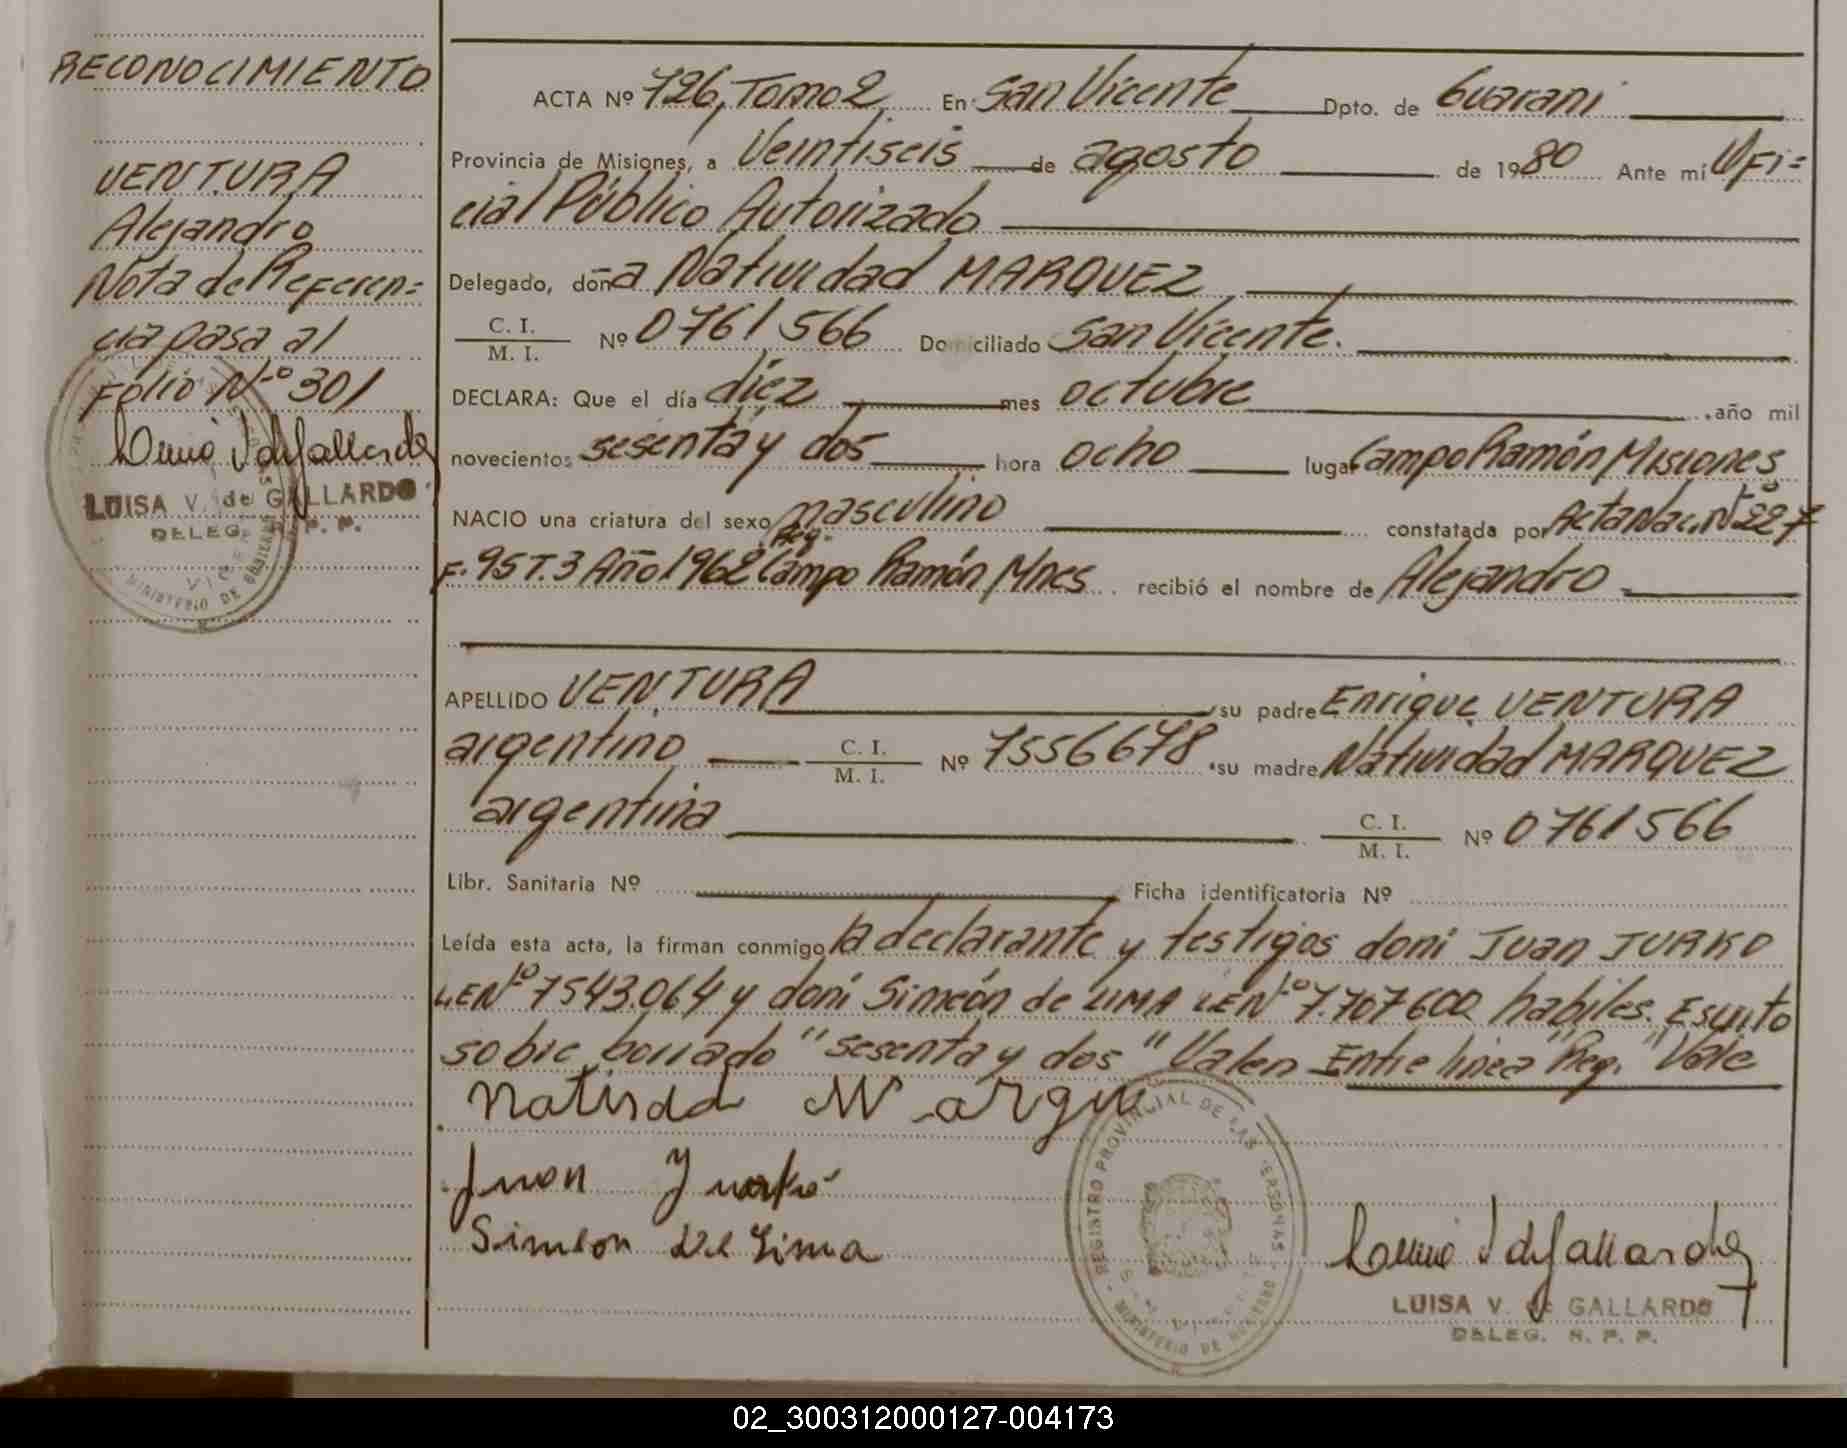 RECONOCIMIENTO
VENTURA
Alejandro
Nota de Referen=
cia pasa al
Folio Nº 301
LUISA V. de GALLARDO
DELEG. R. P. P.
ACTA Nº 726, Tomo 2 En San Vicente Dpto. de Guarani
Provincia de Misiones, a Veintiseis de agosto de 1980 Ante mí Ofi=
cial Público Autorizado
Delegado, doña Natividad MARQUEZ
C. I.
M. I. Nº 0761566 Domiciliado San Vicente.
DECLARA: Que el día diez mes octubre año mil
novecientos sesenta y dos hora ocho lugar Campo Ramón Misiones
NACIO una criatura del sexo masculino constatada por Acta Nac. Nº 227
Reg.
F. 95 T. 3 Año 1962 Campo Ramón Mnes recibió el nombre de Alejandro
APELLIDO VENTURA su padre Enrique VENTURA
argentino C. I.
M. I. Nº 7556678 su madre Natividad MARQUEZ
argentina C. I.
M. I. Nº 0761566
Libr. Sanitaria Nº Ficha identificatoria Nº
Leída esta acta, la firman conmigo la declarante y testigos doni Juan JURKO
LENº 7543.064 y doni Simeón de LIMA LENº 7.707600 habiles. Escrito
sobre borrado "sesenta y dos" Valen Entre linea "Reg." Vale
Juan Jurko
Simeon De Lima
REGISTRO PROVINCIAL DE LAS PERSONAS
MINISTERIO DE GOBIERNO
LUISA V. de GALLARDO
DELEG. R. P. P.
02_300312000127-004173